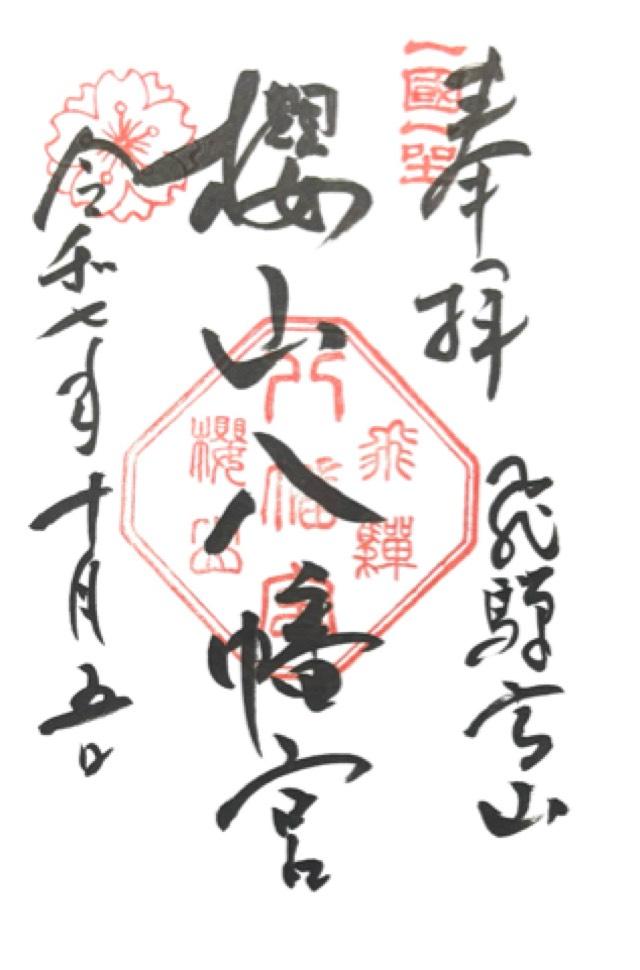 奉拝
飛騨高山
一国一社
櫻山八幡宮
飛驒
八幡宮
櫻山
令和七年十月五日